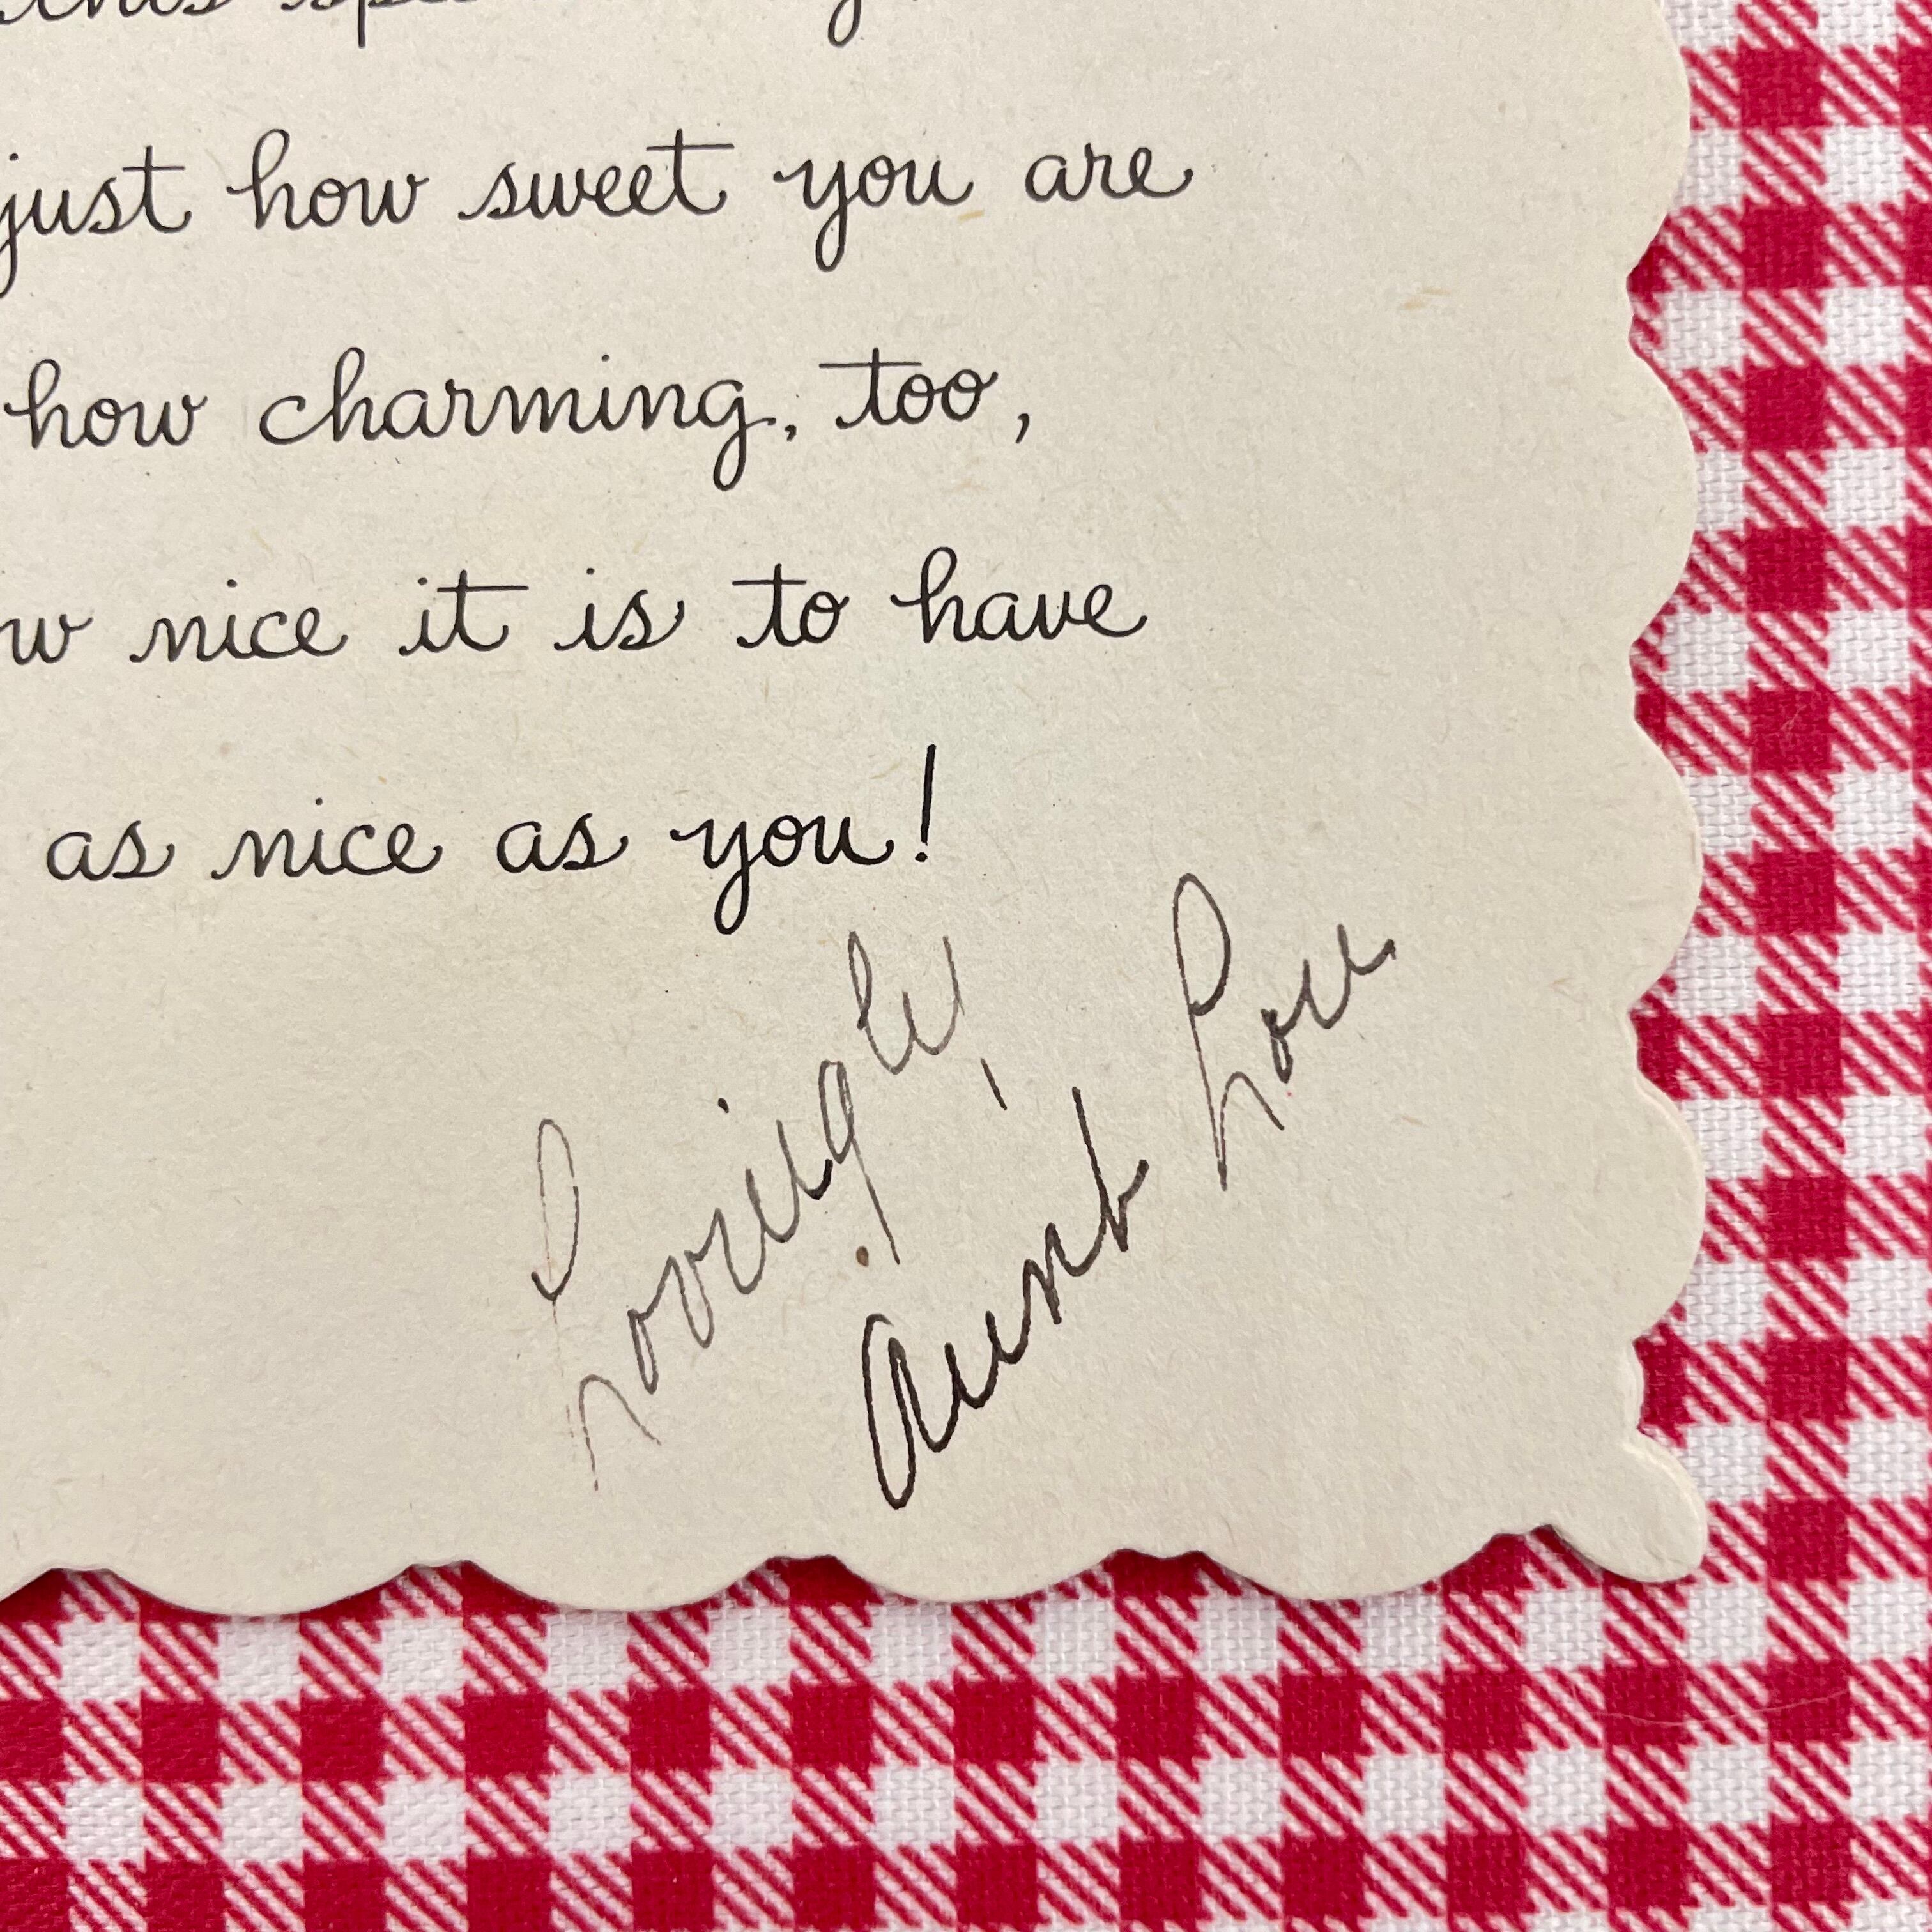 this
just how sweet you are
how charming, too,
w nice it is to have
as nice as you!
Lovingly,
Aunt Lou